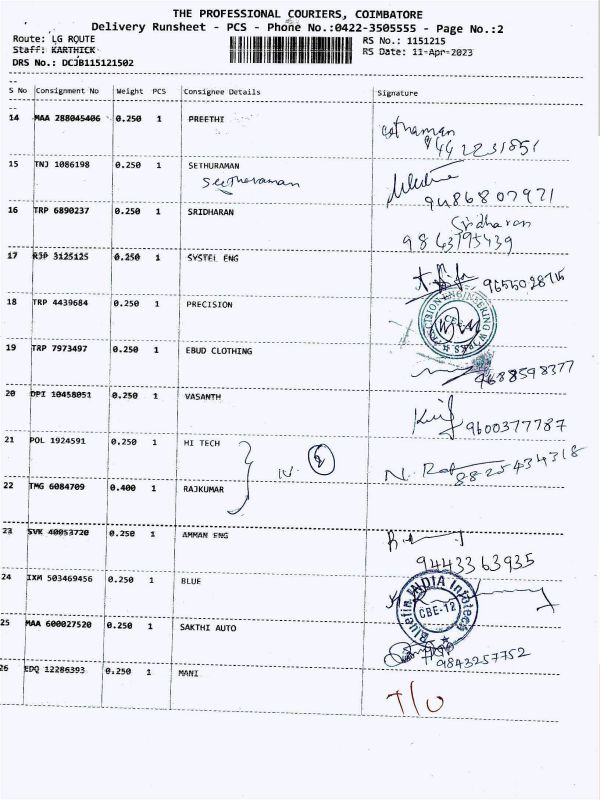 THE PROFESSIONAL COURIERS, COIMBATORE
Delivery Runsheet - PCS - Phone No.:0422-3505555 - Page No.:2
Route: LG ROUTE RS No.: 1151215
Staff: KARTHICK RS Date: 11-Apr-2023
DRS No.: DCJB115121502
S No Consignment No Weight PCS Consignee Details Signature
14 MAA 288045406 0.250 1 PREETHI
9442231851
15 TNJ 1086198 0.250 1 SETHURAMAN
Seetheraman 9486807971
16 TRP 6890237 0.250 1 SRIDHARAN Sridharan
9843195439
17 RJP 3125125 0.250 1 SYSTEL ENG
9655028715
18 TRP 4439684 0.250 1 PRECISION
PRECISION ENGINEERING WORKS
19 TRP 7973497 0.250 1 EBUD CLOTHING
9688598377
20 DPI 10458051 0.250 1 VASANTH
9600377787
21 POL 1924591 0.250 1 HI TECH
8825434318
22 TMG 6084709 0.400 1 RAJKUMAR
23 SVK 40053720 0.250 1 AMMAN ENG
9443363935
24 IXM 503469456 0.250 1 BLUE
Bluetin INDIA Infotech
CBE-12
25 MAA 600027520 0.250 1 SAKTHI AUTO
9843257752
26 EDQ 12286393 0.250 1 MANI
T/O